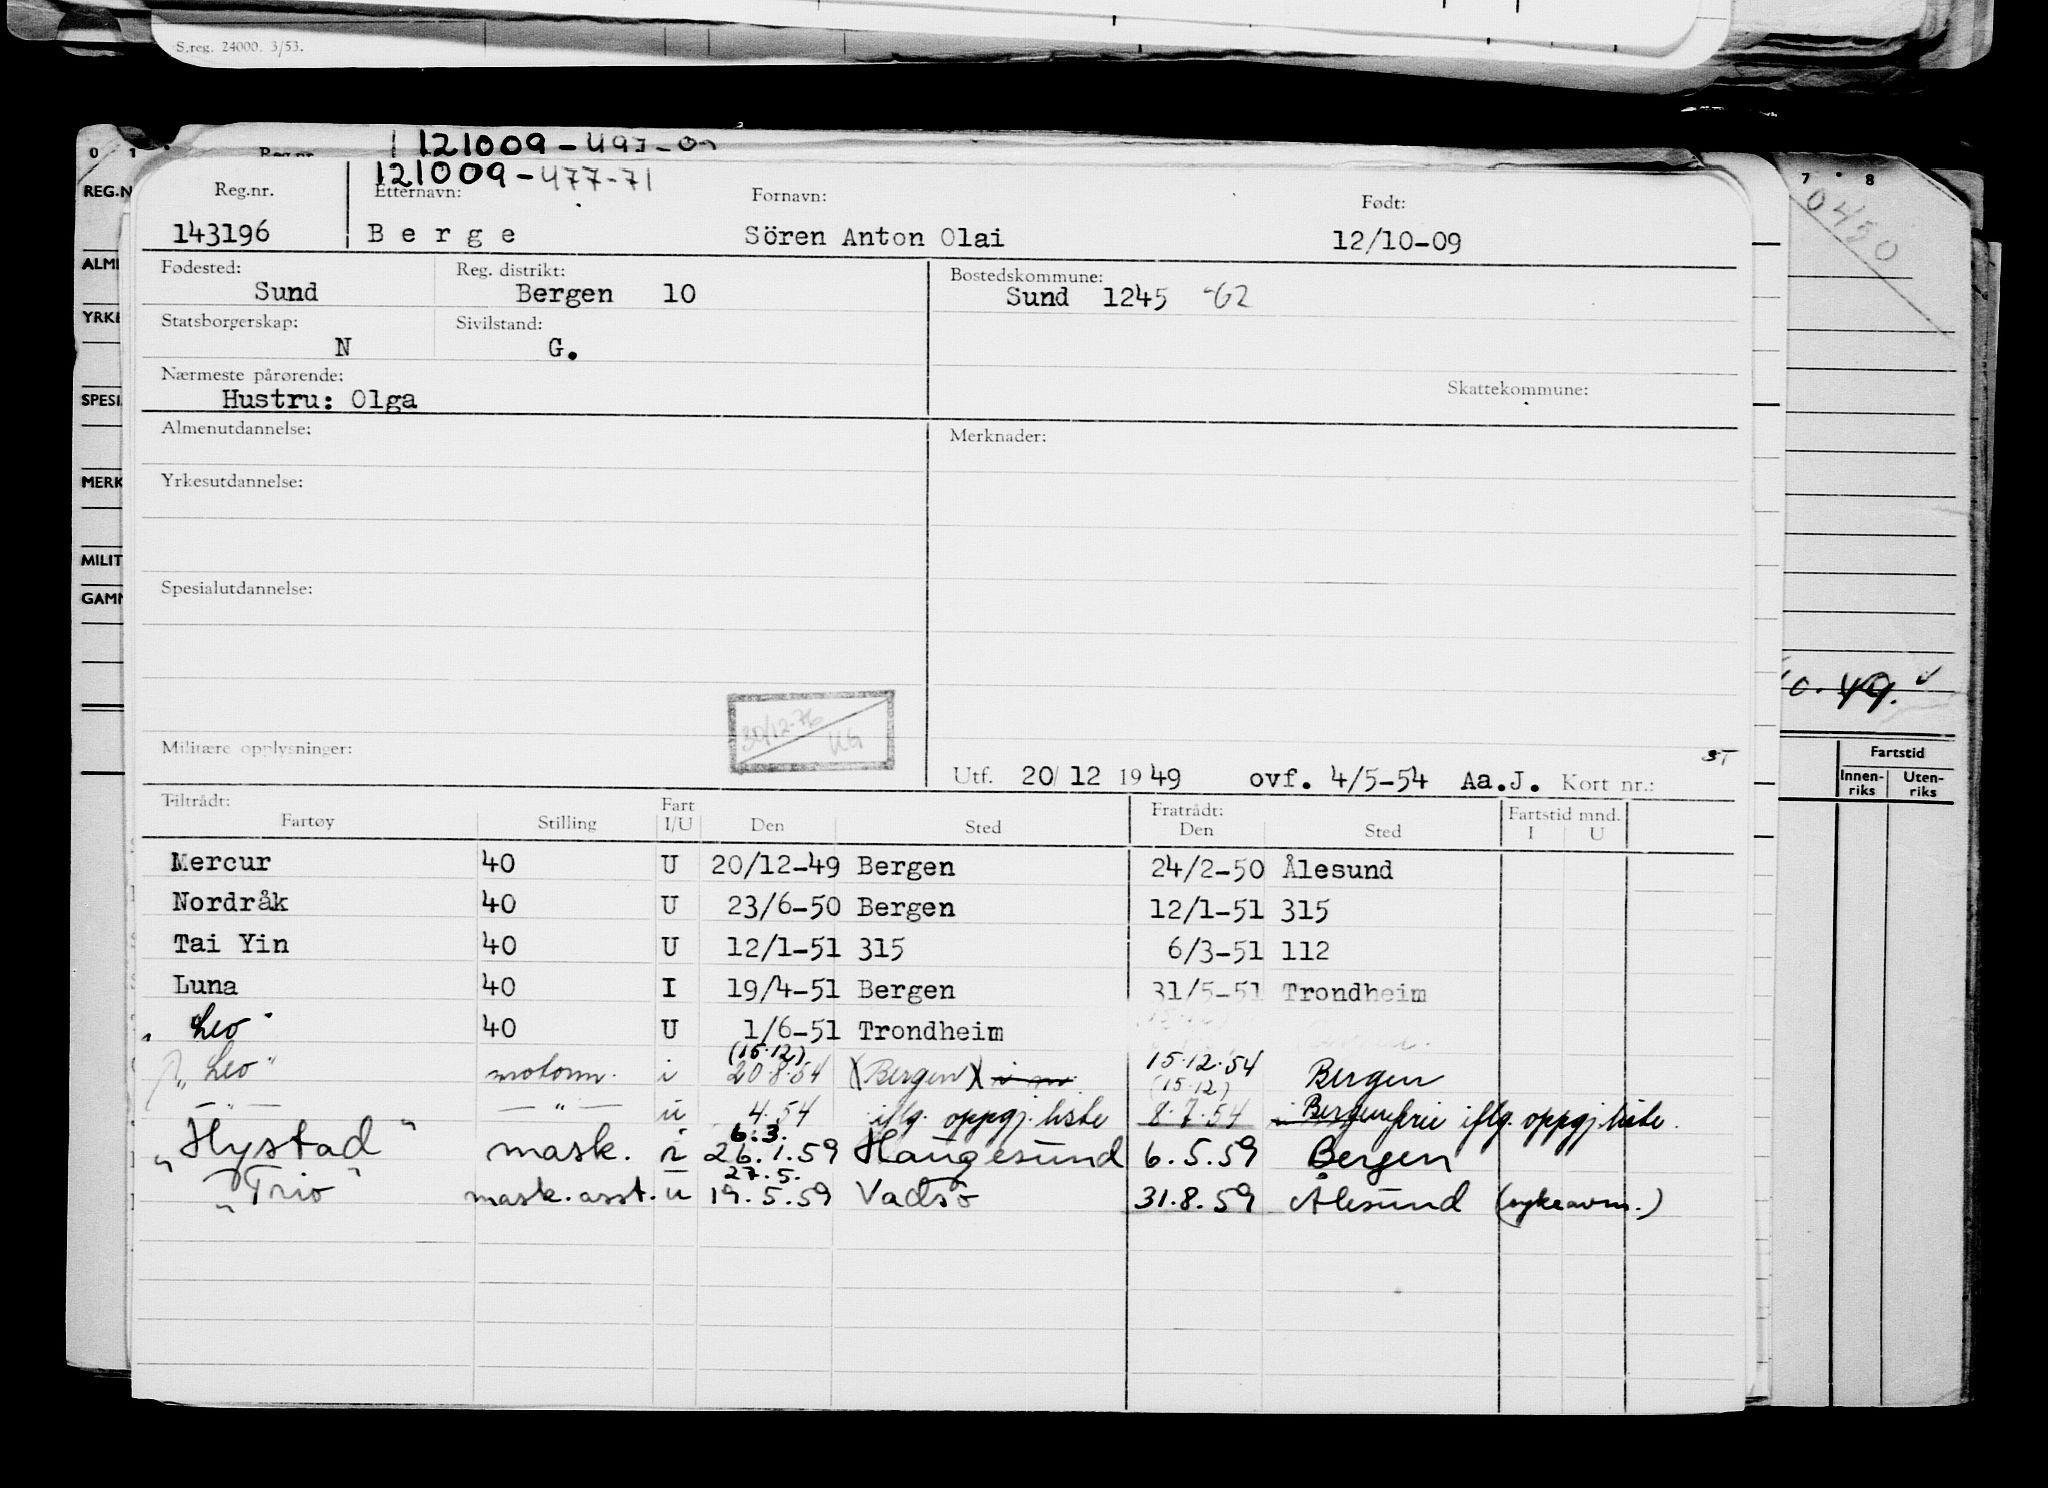 S.reg. 24000. 3/53.
0 1 Reg.nr. 121009-
7 8
REG.N
121009-477-71
04/50
Reg.nr. Etternavn: Fornavn: Født:
143196 Berge Sören Anton Olai 12/10-09
ALME
Fødested: Reg. distrikt: Bostedskommune:
Sund Bergen 10 Sund 1245 -62
YRKE
Statsborgerskap: Sivilstand:
N G.
Nærmeste pårørende: Skattekommune:
SPESI
Hustru: Olga
Almenutdannelse: Merknader:
MERK
Yrkesutdannelse:
MILIT
Spesialutdannelse:
GAMM
10.49.
30/12-76
UG
Militære opplysninger:
ST
Utf. 20/12 1949 ovf. 4/5-54 Aa.J. Kort nr.:
Fartstid
Innen-riks Uten-riks
Tiltrådt: Fart Fratrådt: Fartstid mnd.
Fartøy Stilling I/U Den Sted Den Sted I U
Mercur 40 U 20/12-49 Bergen 24/2-50 Ålesund
Nordråk 40 U 23/6-50 Bergen 12/1-51 315
Tai Yin 40 U 12/1-51 315 6/3-51 112
Luna 40 I 19/4-51 Bergen 31/5-51 Trondheim
"Leo" 40 U 1/6-51 Trondheim
(15.12)
"Leo" motorm. i 20.8.54 (Bergen) 15.12.54 Bergen
(15.12)
— " — — " — u 4.54 iflg. oppgj. liste 8.7.54 iflg. oppgj. liste.
6.3.
"Hystad" mask. i 26.1.59 Haugesund 6.5.59 Bergen
27.5.
"Trio" mask. asst. u 19.5.59 Vadsö 31.8.59 Ålesund (sykeavm.)